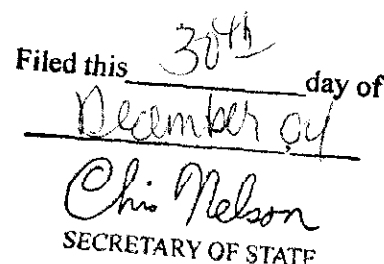 Filed this 30th day of
December 04
Chris Nelson
SECRETARY OF STATE